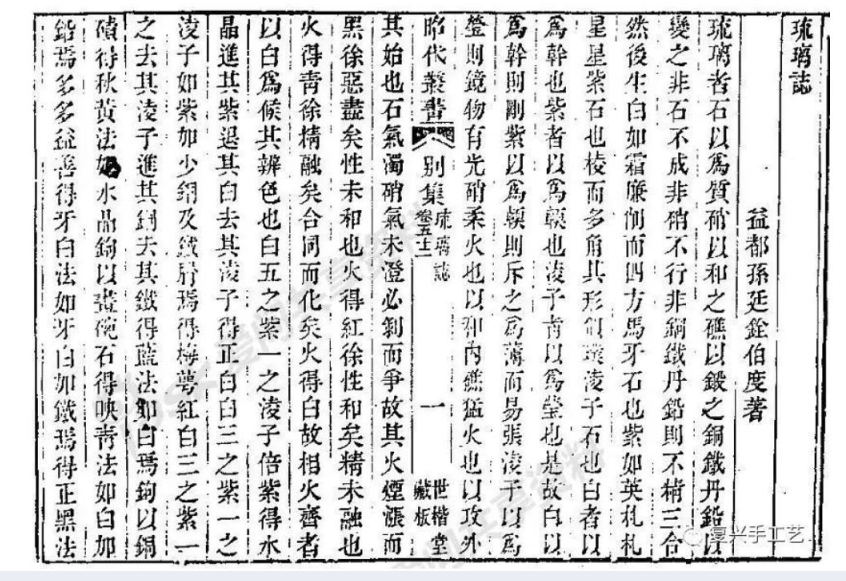 琉璃誌
益都孫廷銓伯度著
琉璃者石以爲質硝以和之礁以鍛之銅鐵丹鉛以
變之非石不成非硝不行非銅鐵丹鉛則不精三合
然後生白如霜廉削而四方馬牙石也紫如英札札
星星紫石也棱而多角其形似璞凌子石也白者以
爲幹也紫者以爲輭也凌子者以爲瑩也是故白以
爲幹則剛紫以爲輭則斥之爲薄而易張凌子以爲
瑩則鏡物有光硝柔火也以和內礁猛火也以攻外
昭代叢書 別集 琉璃誌 卷五十二 一 世楷堂藏板
其始也石氣濁硝氣未澄必剝而爭故其火煙漲而
黑徐惡盡矣性未和也火得紅徐性和矣精未融也
火得青徐精融矣合同而化矣火得白故相火齊者
以白爲候其辨色也白五之紫一之凌子倍紫得水
晶進其紫退其白去其凌子得正白白三之紫一之
凌子如紫加少銅及鐵屑焉得梅萼紅白三之紫一
之去其凌子進其銅去其鐵得藍法如白焉鉤以銅
磧得秋黃法如水晶鉤以畫碗石得映青法如白加
鉛焉多多益善得牙白法如牙白加鐵焉得正黑法
復兴手工艺